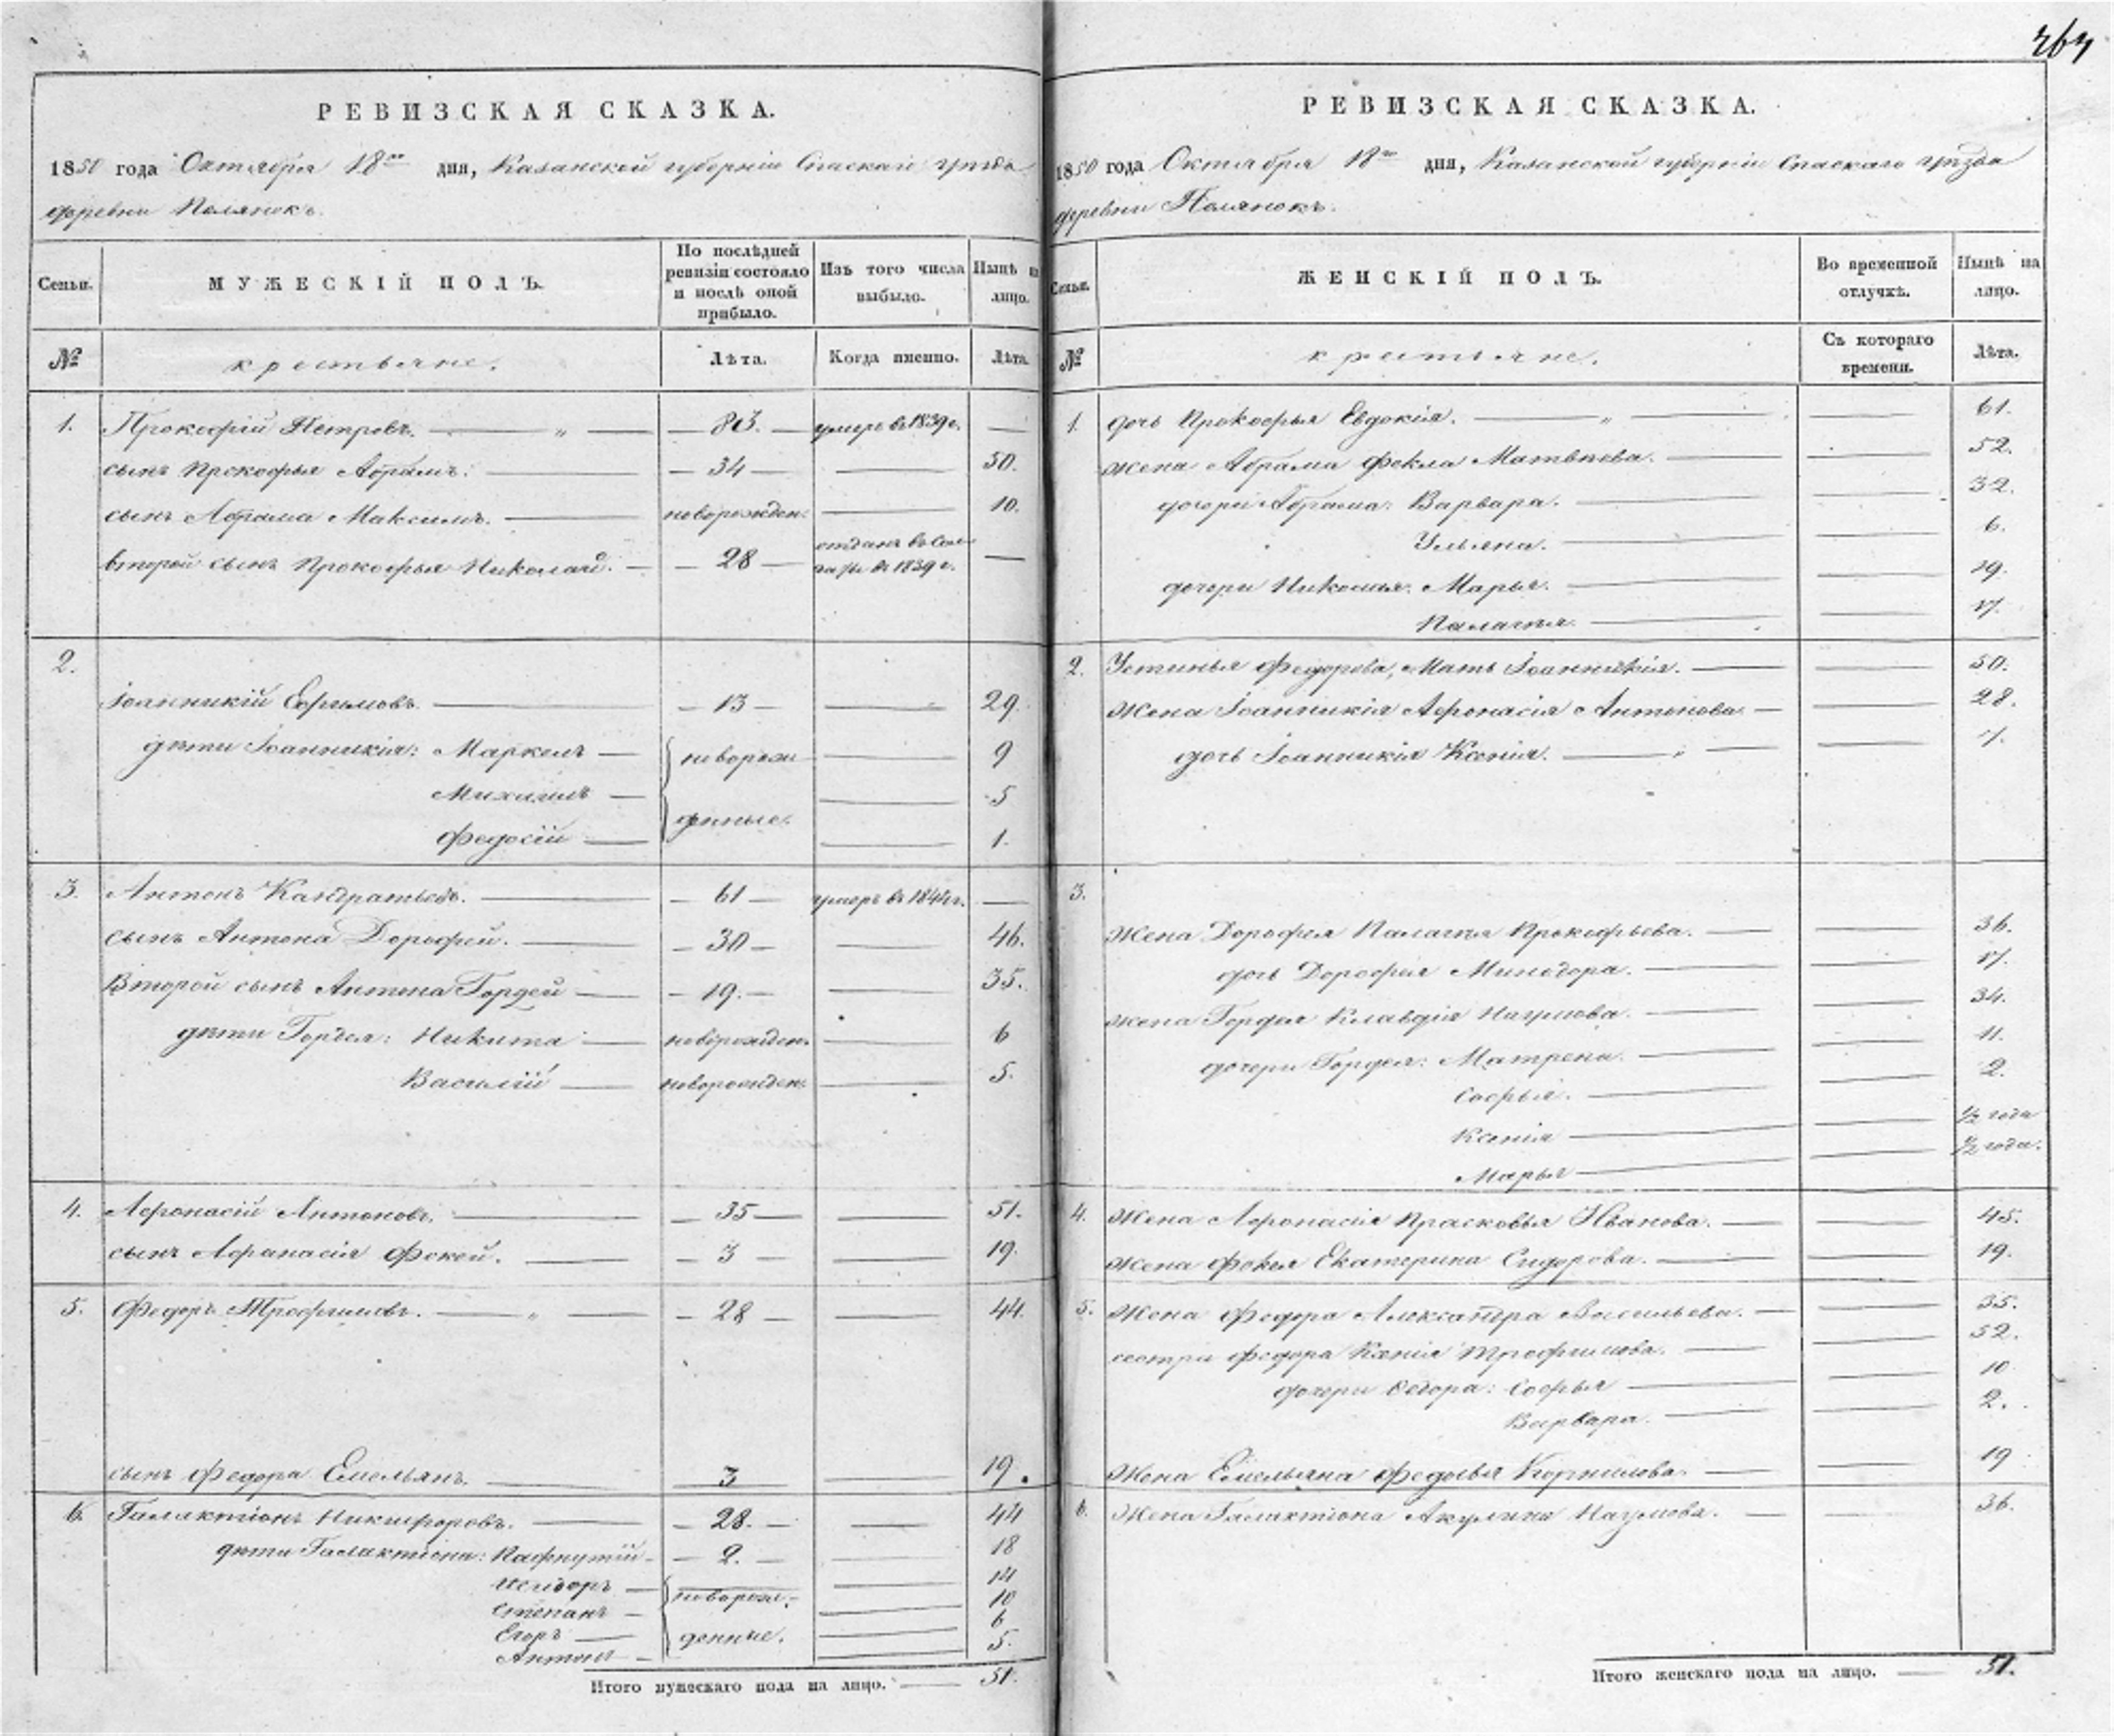 РЕВИЗСКАЯ СКАЗКА.
1850 года Октября 18го дня, Казанской губерніи Спаскаго уѣзда
деревни Полянокъ.
Семьи.
МУЖЕСКІЙ ПОЛЪ.
По послѣдней ревизіи состояло и послѣ оной прибыло.
Изъ того числа выбыло.
Нынѣ на лицо.
№
крестьяне.
Лѣта.
Когда именно.
Лѣта.
1. Прокофій Петровъ. — 83. — умеръ въ 1839 г. —
сынъ Прокофья Абрамъ. — 34 — 50.
сынъ Абрама Максимъ. новорожден. — 10.
второй сынъ Прокофья Николай. — 28 — отданъ въ Сол-
даты въ 1839 г. —
2.
Іоанникій Ефимовъ. — 13 — 29.
дѣти Іоанникія: Маркелъ — новорож- — 9
Михаилъ — 5
денные.
Федосій — 1.
3. Антонъ Кандратьевъ. — 61 — умеръ въ 1844 г. —
сынъ Антона Дорофей. — 30 — 46.
Второй сынъ Антона Гордей — 19. — 35.
дѣти Гордея: Никита — новорожден. — 6
Василій — новорожден. — 5.
4. Афонасій Антоновъ. — 35 — 51.
сынъ Афанасія Фокей. — 3 — 19.
5. Федоръ Трофимовъ. — „ — 28 — 44.
сынъ Федора Емельянъ. — 3 — 19.
6. Галактіонъ Никифоровъ. — 28. — 44
дѣти Галактіона: Пафнутій — 2. — 18
Исидоръ — новорож- — 14
Степанъ — 10
Егоръ — денные. — 6
Антонъ — 5.
Итого мужескаго пола на лицо. — 51.
РЕВИЗСКАЯ СКАЗКА.
1850 года Октября 18го дня, Казанской губерніи Спаскаго уѣзда
деревни Полянокъ.
Семьи.
ЖЕНСКІЙ ПОЛЪ.
Во временной отлучкѣ.
Нынѣ на лицо.
№
крестьяне.
Съ котораго времени.
Лѣта.
1. дочь Прокофья Евдокія. — „ — 61.
Жена Абрама Фекла Матвѣева. — 52.
дочери Абрама: Варвара. — 32.
Ульяна. — 6.
дочери Николая: Марья. — 19.
Палагѣя — 17.
2. Устинья Федорова, Мать Іоанникія. — 50.
Жена Іоанникія Афонасія Антонова — 28.
дочь Іоанникія Ксенія. — 7.
3.
Жена Дорофея Палагѣя Прокофьева. — 36.
дочь Дорофея Минодора. — 17.
Жена Гордея Клавдія Наумова. — 34.
дочери Гордея: Матрена. — 11.
Софья. — 2.
Ксенія — 1/2 года
Марья — 1/2 года.
4. Жена Афонасія Прасковья Иванова. — 45.
Жена Фокея Екатерина Сидорова. — 19.
5. Жена Федора Александра Васильева. — 35.
сестра Федора Ксенія Трофимова. — 52.
дочери Федора: Софья — 10
Варвара. — 2.
Жена Емельяна Федосья Корнилова. — 19
6. Жена Галактіона Акулина Наумова. — 36.
Итого женскаго пола на лицо. — 51.